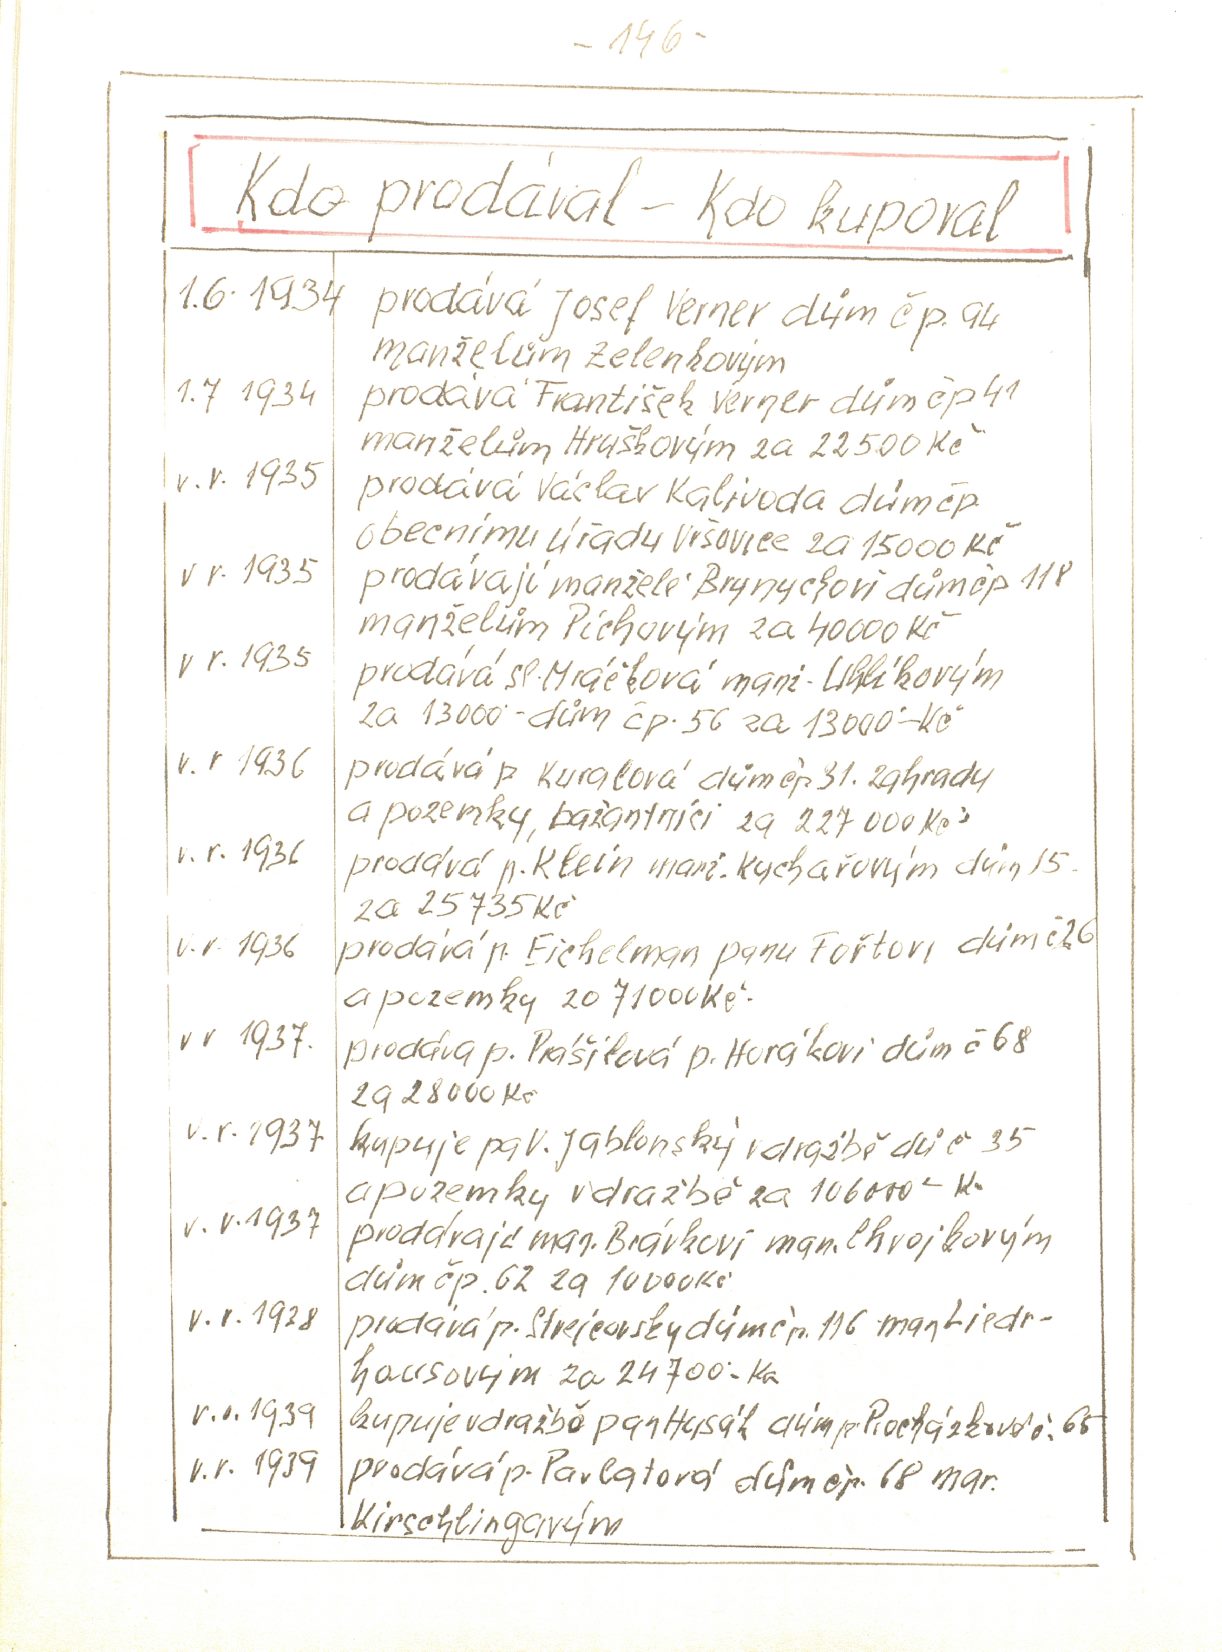 - 146 -
Kdo prodával - Kdo kupoval
1.6. 1934 prodává Josef Verner dům čp. 94
manželům Zelenkovým
1.7 1934 prodává František Verner dům čp 41
manželům Hruškovým za 22500 Kč
v. r. 1935 prodává Václav Kalivoda dům čp.
obecnímu úřadu Vršovice za 15000 Kč
v r. 1935 prodávají manželé Brynychovi dům čp 118
manželům Píchovým za 40000 Kč
v r. 1935 prodává sl. Mráčková manž. Uhlíkovým
za 13000 - dům čp. 56 za 13000 - Kč
v. r 1936 prodává p Kuralová dům čp 31. zahrady
a pozemky, bažantnici za 227 000 Kč
v. r. 1936 prodává p. Klein manž. Kuchařovým dům 15.
za 25735 Kč
v. r. 1936 prodává p. Eichelman panu Fořtovi dům č 26
a pozemky za 71000 Kč.
v r 1937. prodáva p. Prášilová p. Horákovi dům č 68
za 28000 Kč
v. r. 1937 kupuje pa V. Jablonský v dražbě dů č 35
a pozemky v dražbě za 106000 - K.
v. r. 1937 prodávají man. Brávkovi man. Chvojkovým
dům čp. 62 za 10000 Kč
v. r. 1928 prodává p. Strejcovsky dům čp. 116 man Liedr-
hausovým za 24700 - Kč
v. r. 1939 kupuje v dražbě pan Husák dům p Procházkové č. 65
v. r. 1939 prodává p. Pavlatová dům čp. 68 mar.
Kirschlingavým